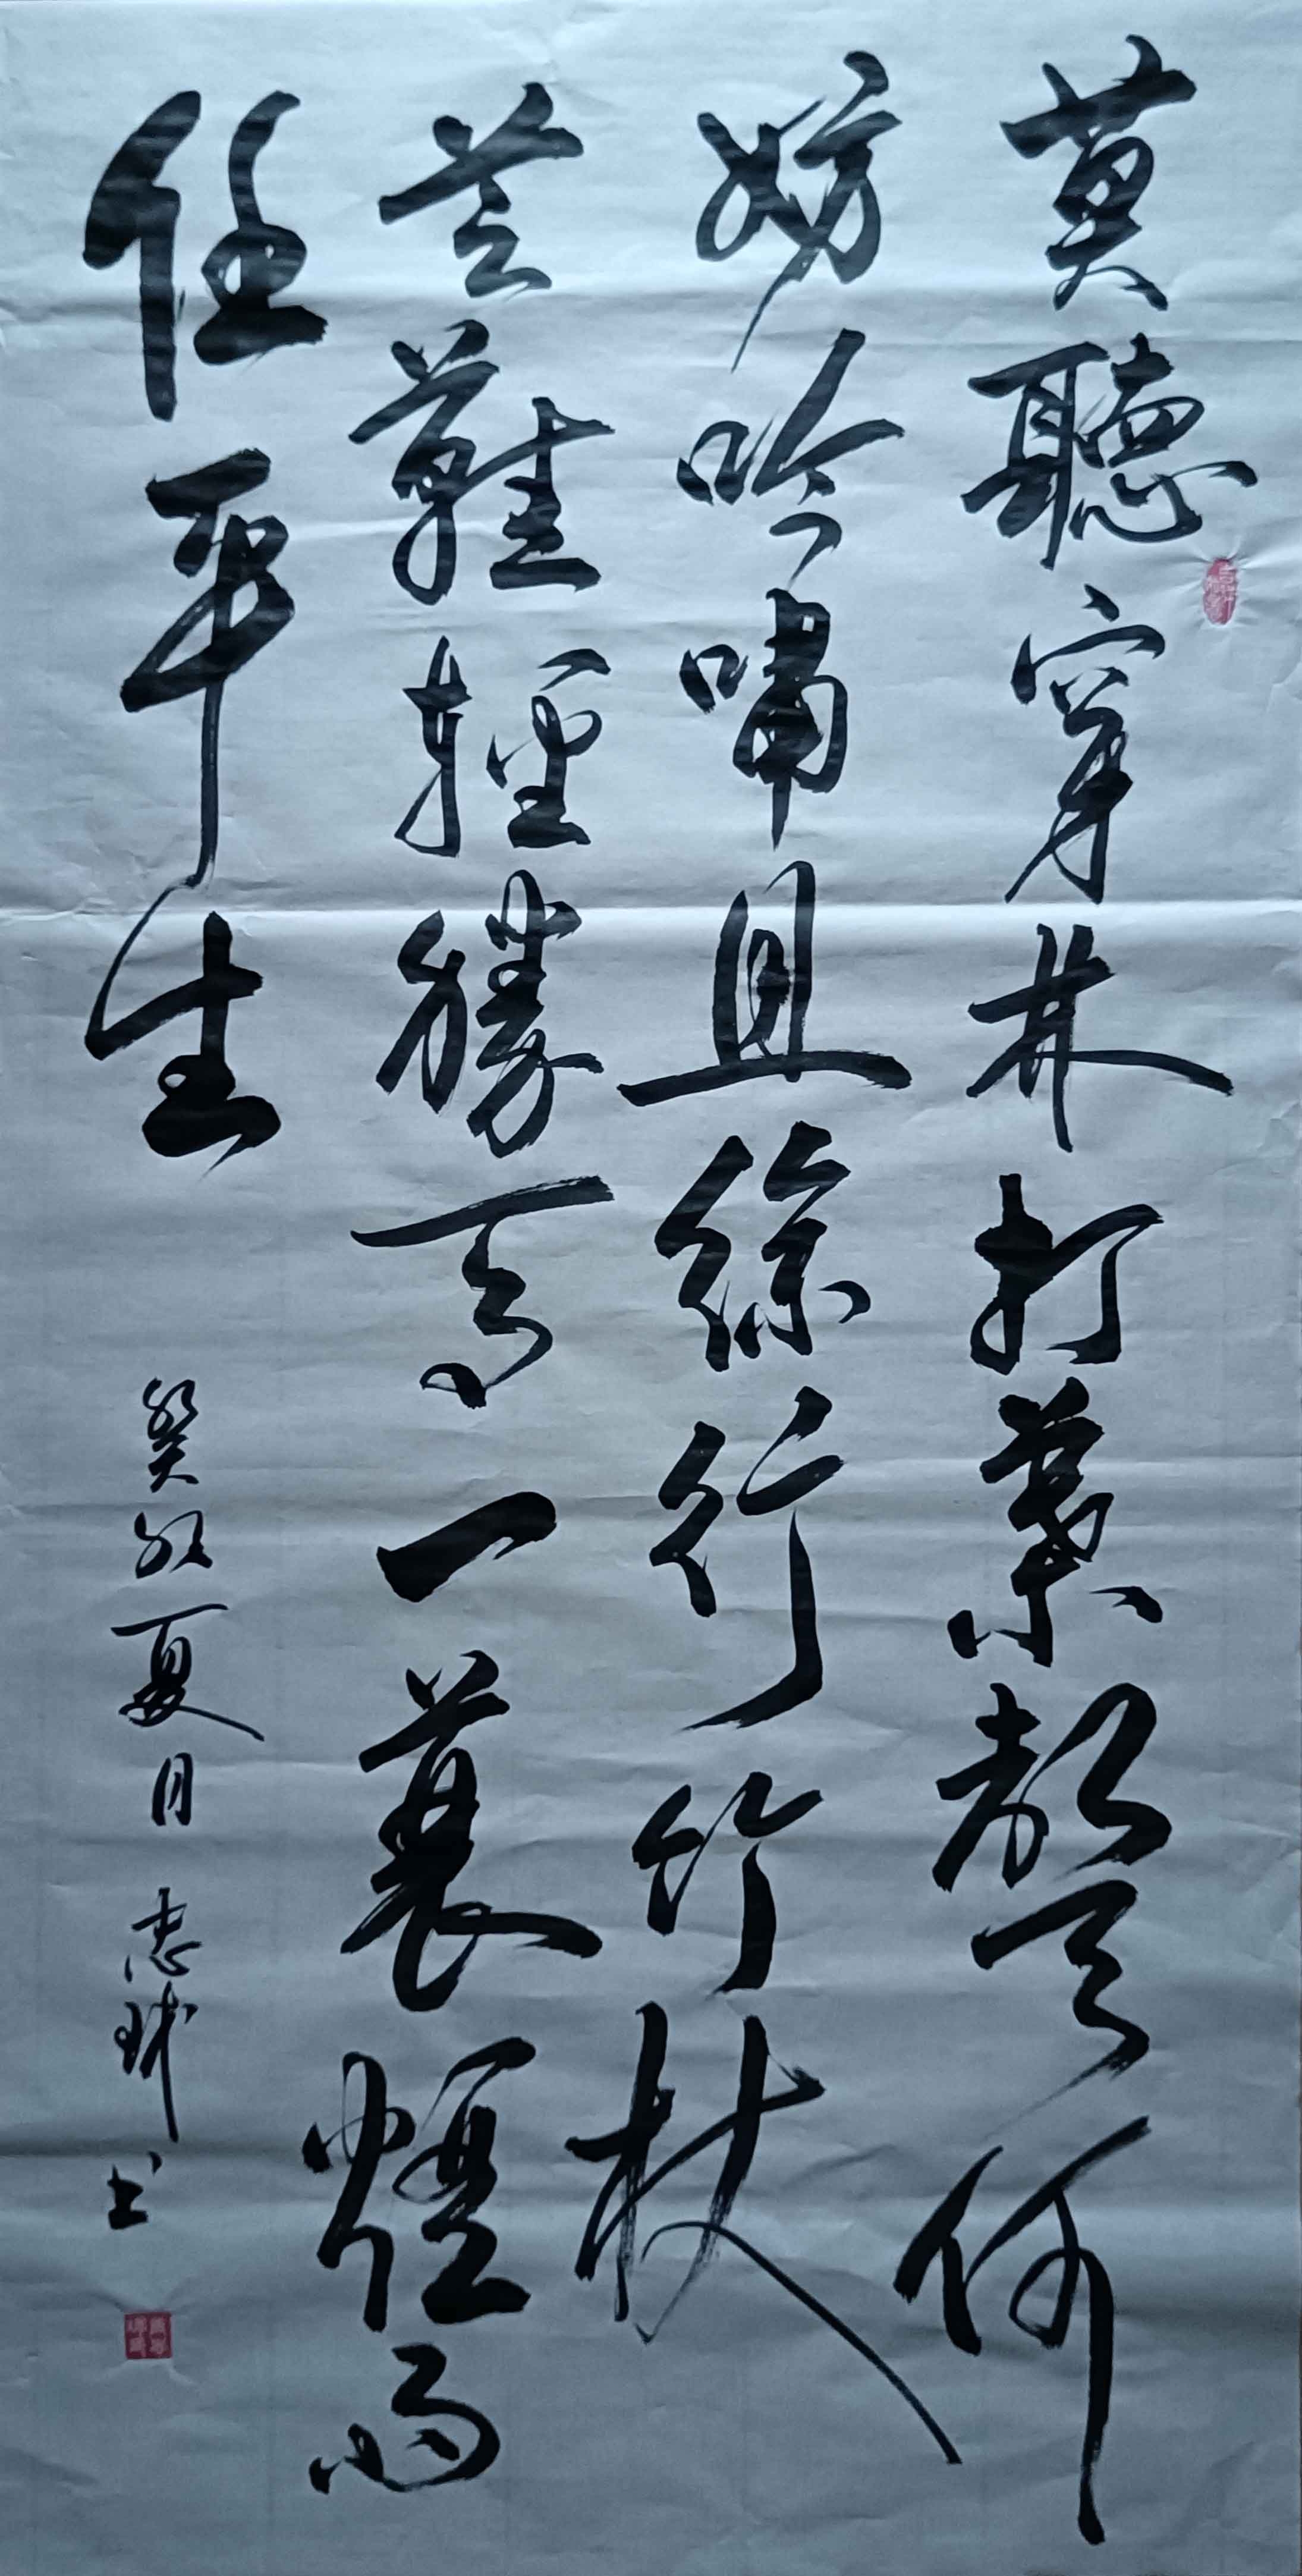 莫聽穿林打葉聲何
妨吟嘯且徐行竹杖
芒鞋輕勝馬一蓑煙雨
任平生
癸卯夏月 忠球书